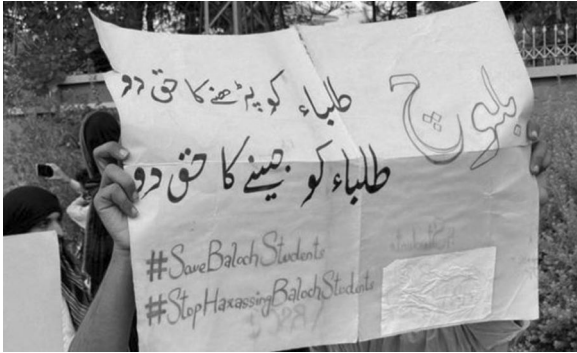 بلوچ
طلباء کو پڑھنے کا حق دو
طلباء کو جینے کا حق دو
#SaveBalochStudents
#StopHaxassingBalochStudents